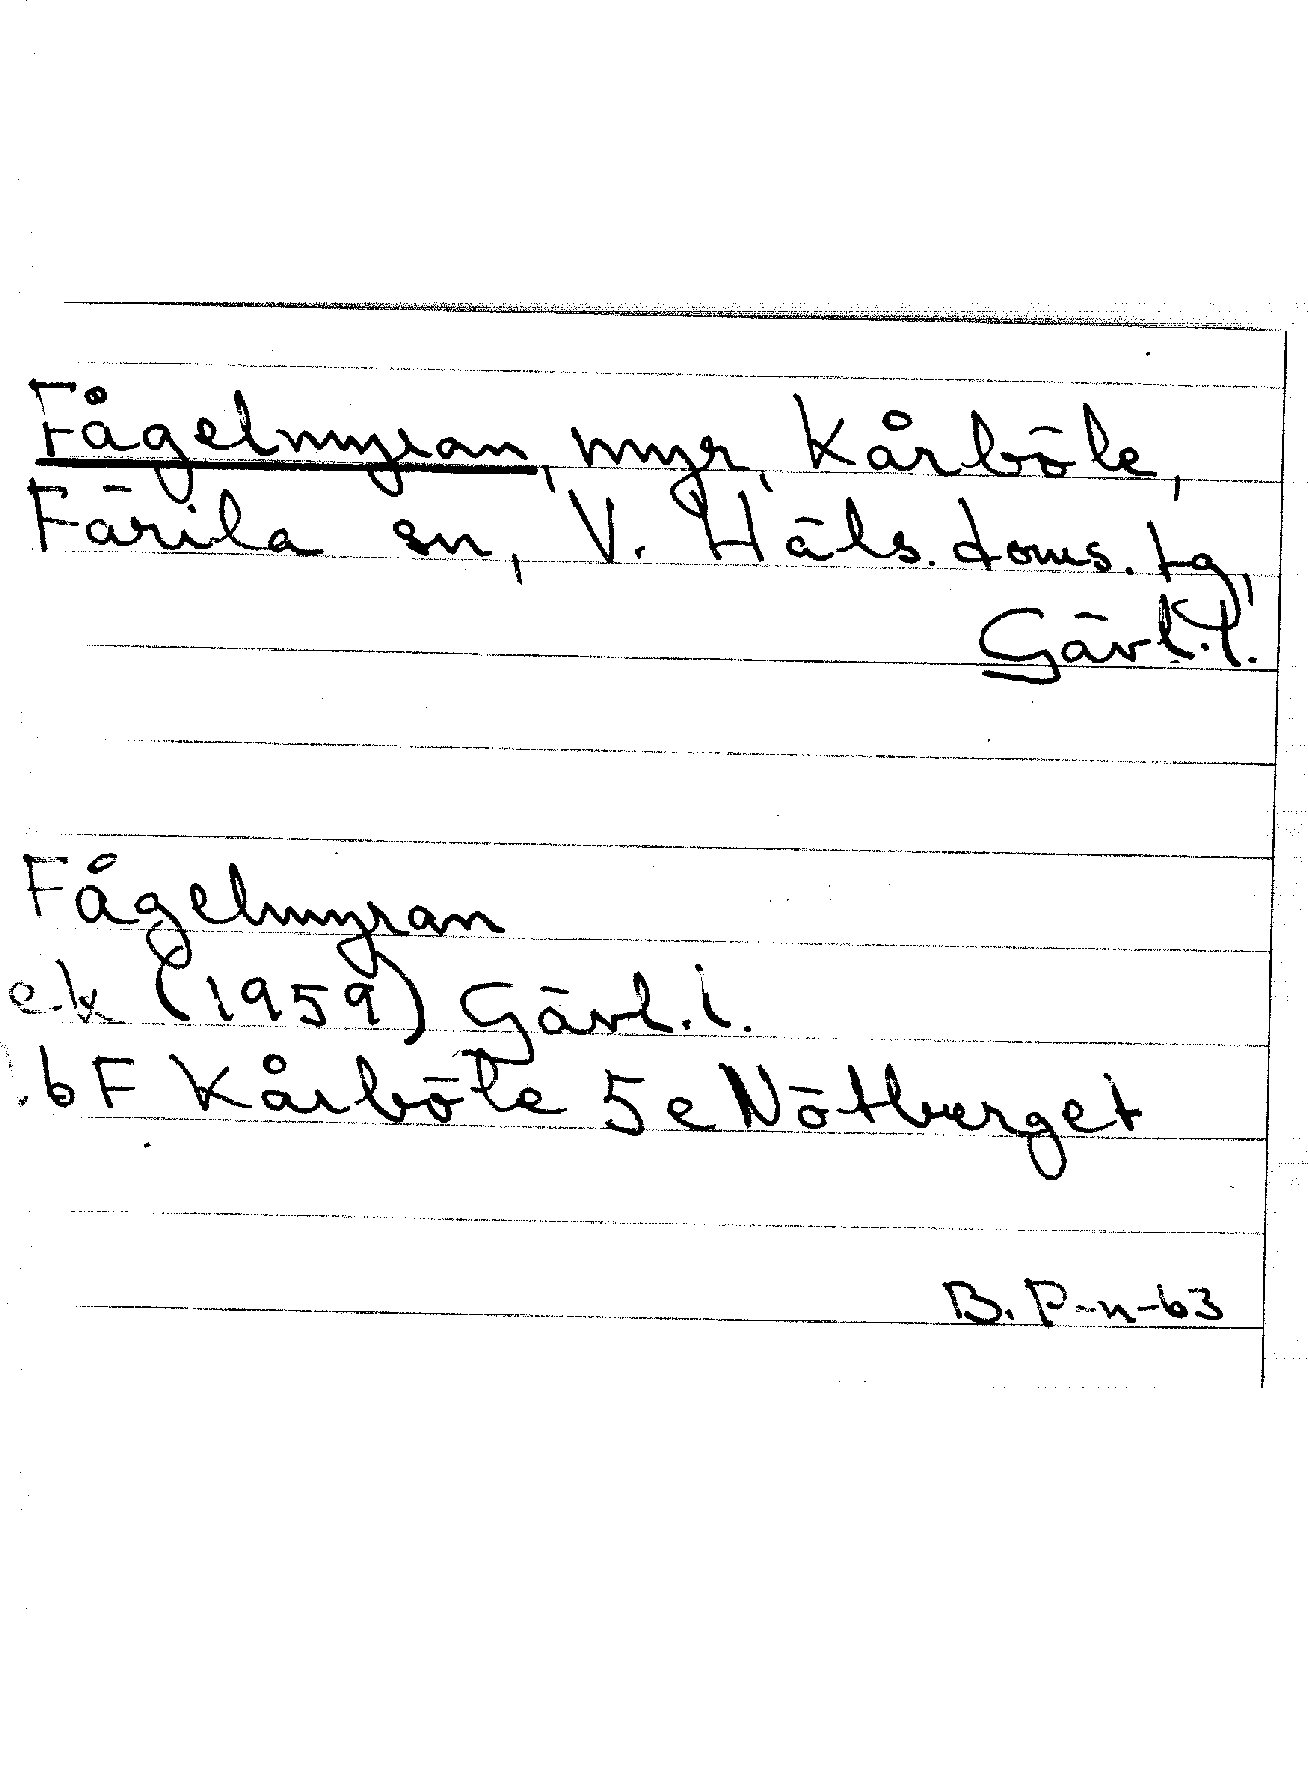 Fågelmyran, myr, Kårböle,
Färila sn, V. Häls. doms. tg,
Gävl. l.
Fågelmyran
ek (1959) Gävl. l.
bF Kårböle 5e Nötberget
B. P-n-63